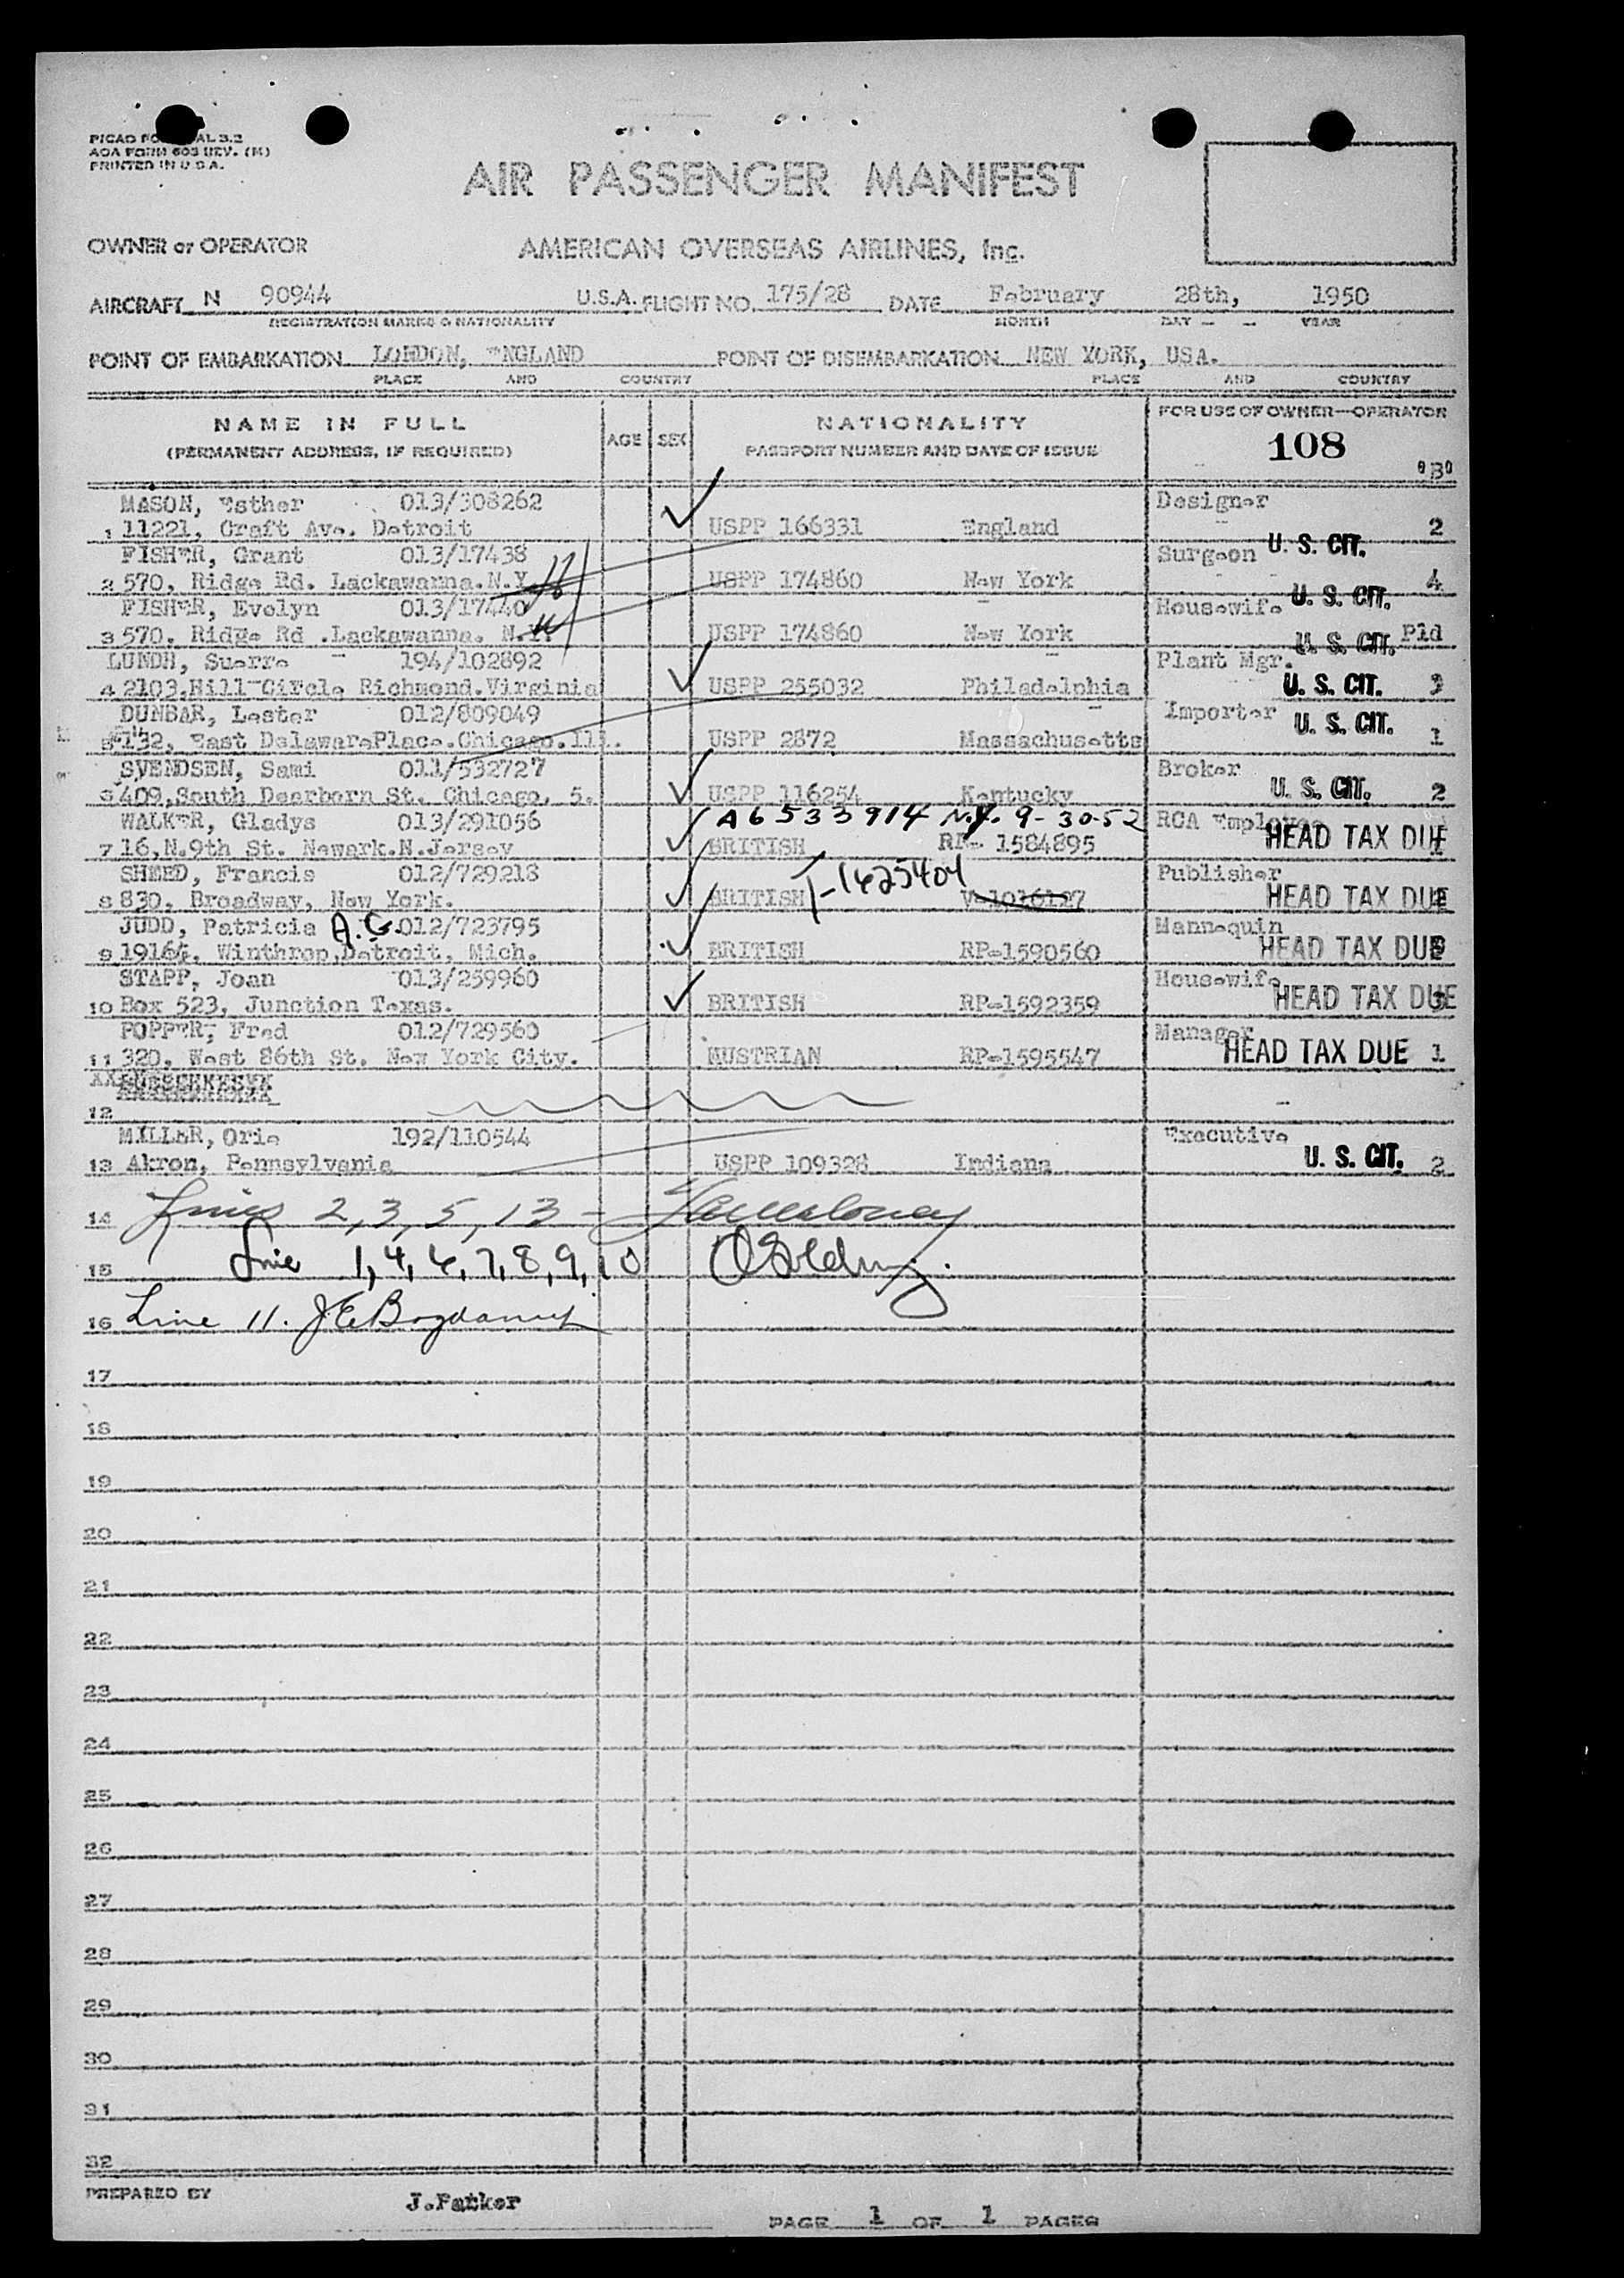 PICAO FO AL 3.2
AOA FORM 603 REV. (M)
PRINTED IN U.S.A.
AIR PASSENGER MANIFEST
OWNER or OPERATOR AMERICAN OVERSEAS AIRLINES, Inc.
AIRCRAFT N 90944 U.S.A. FLIGHT NO. 175/28 DATE February 28th, 1950
REGISTRATION MARKS & NATIONALITY MONTH DAY YEAR
POINT OF EMBARKATION LONDON, ENGLAND POINT OF DISEMBARKATION NEW YORK, USA.
PLACE AND COUNTRY PLACE AND COUNTRY
NAME IN FULL AGE SEX NATIONALITY FOR USE OF OWNER—OPERATOR
(PERMANENT ADDRESS, IF REQUIRED) PASSPORT NUMBER AND DATE OF ISSUE 108
"B"
MASON, Esther 013/308262 Designer
1 11221, Craft Ave. Detroit USPP 166331 England U. S. CIT. 2
FISHER, Grant 013/17438 Surgeon
2 570. Ridge Rd. Lackawanna.N.Y. USPP 174860 New York U. S. CIT. 4
FISHER, Evelyn 013/17440 Housewife
3 570. Ridge Rd .Lackawanna. N.Y. USPP 174860 New York U. S. CIT. Pld
LUNDH, Suerre 194/102892 Plant Mgr.
4 2103.Hill Circle Richmond.Virginia USPP 255032 Philadelphia U. S. CIT. 3
DUNBAR, Lester 012/809049 Importer
5 132, East DelawarePlace.Chicago.Ill. USPP 2872 Massachusetts U. S. CIT. 1
SVENDSEN, Sami 011/532727 Broker
6 409,South Dearborn St. Chicago, 5. USPP 116254 Kentucky U. S. CIT. 2
WALKER, Gladys 013/291056 A6533914 N.Y. 9-30-52 RCA Employee
7 16,N.9th St. Newark.N.Jersey BRITISH RP- 1584895 HEAD TAX DUE
SHEED, Francis 012/729218 T-1625404 Publisher
8 830, Broadway, New York. BRITISH V-1016127 HEAD TAX DUE
JUDD, Patricia A.G. 012/723795 Mannequin
9 19164, Winthrop,Detroit, Mich. BRITISH RP-1590560 HEAD TAX DUE
STAPP, Joan 013/259960 Housewife
10 Box 523, Junction Texas. BRITISH RP-1592359 HEAD TAX DUE
POPPER, Fred 012/729560 Manager
11 320, West 86th St. New York City. MUSTRIAN RP-1595547 HEAD TAX DUE 1
12
MILLER, Orie 192/110544 Executive
13 Akron, Pennsylvania USPP 109328 Indiana U. S. CIT. 2
14 Lines 2, 3, 5, 13 -
15 Line 1, 4, 6, 7, 8, 9, 10
16 Line 11.
17
18
19
20
21
22
23
24
25
26
27
28
29
30
31
32
PREPARED BY J.Parker
PAGE 1 OF 1 PAGES